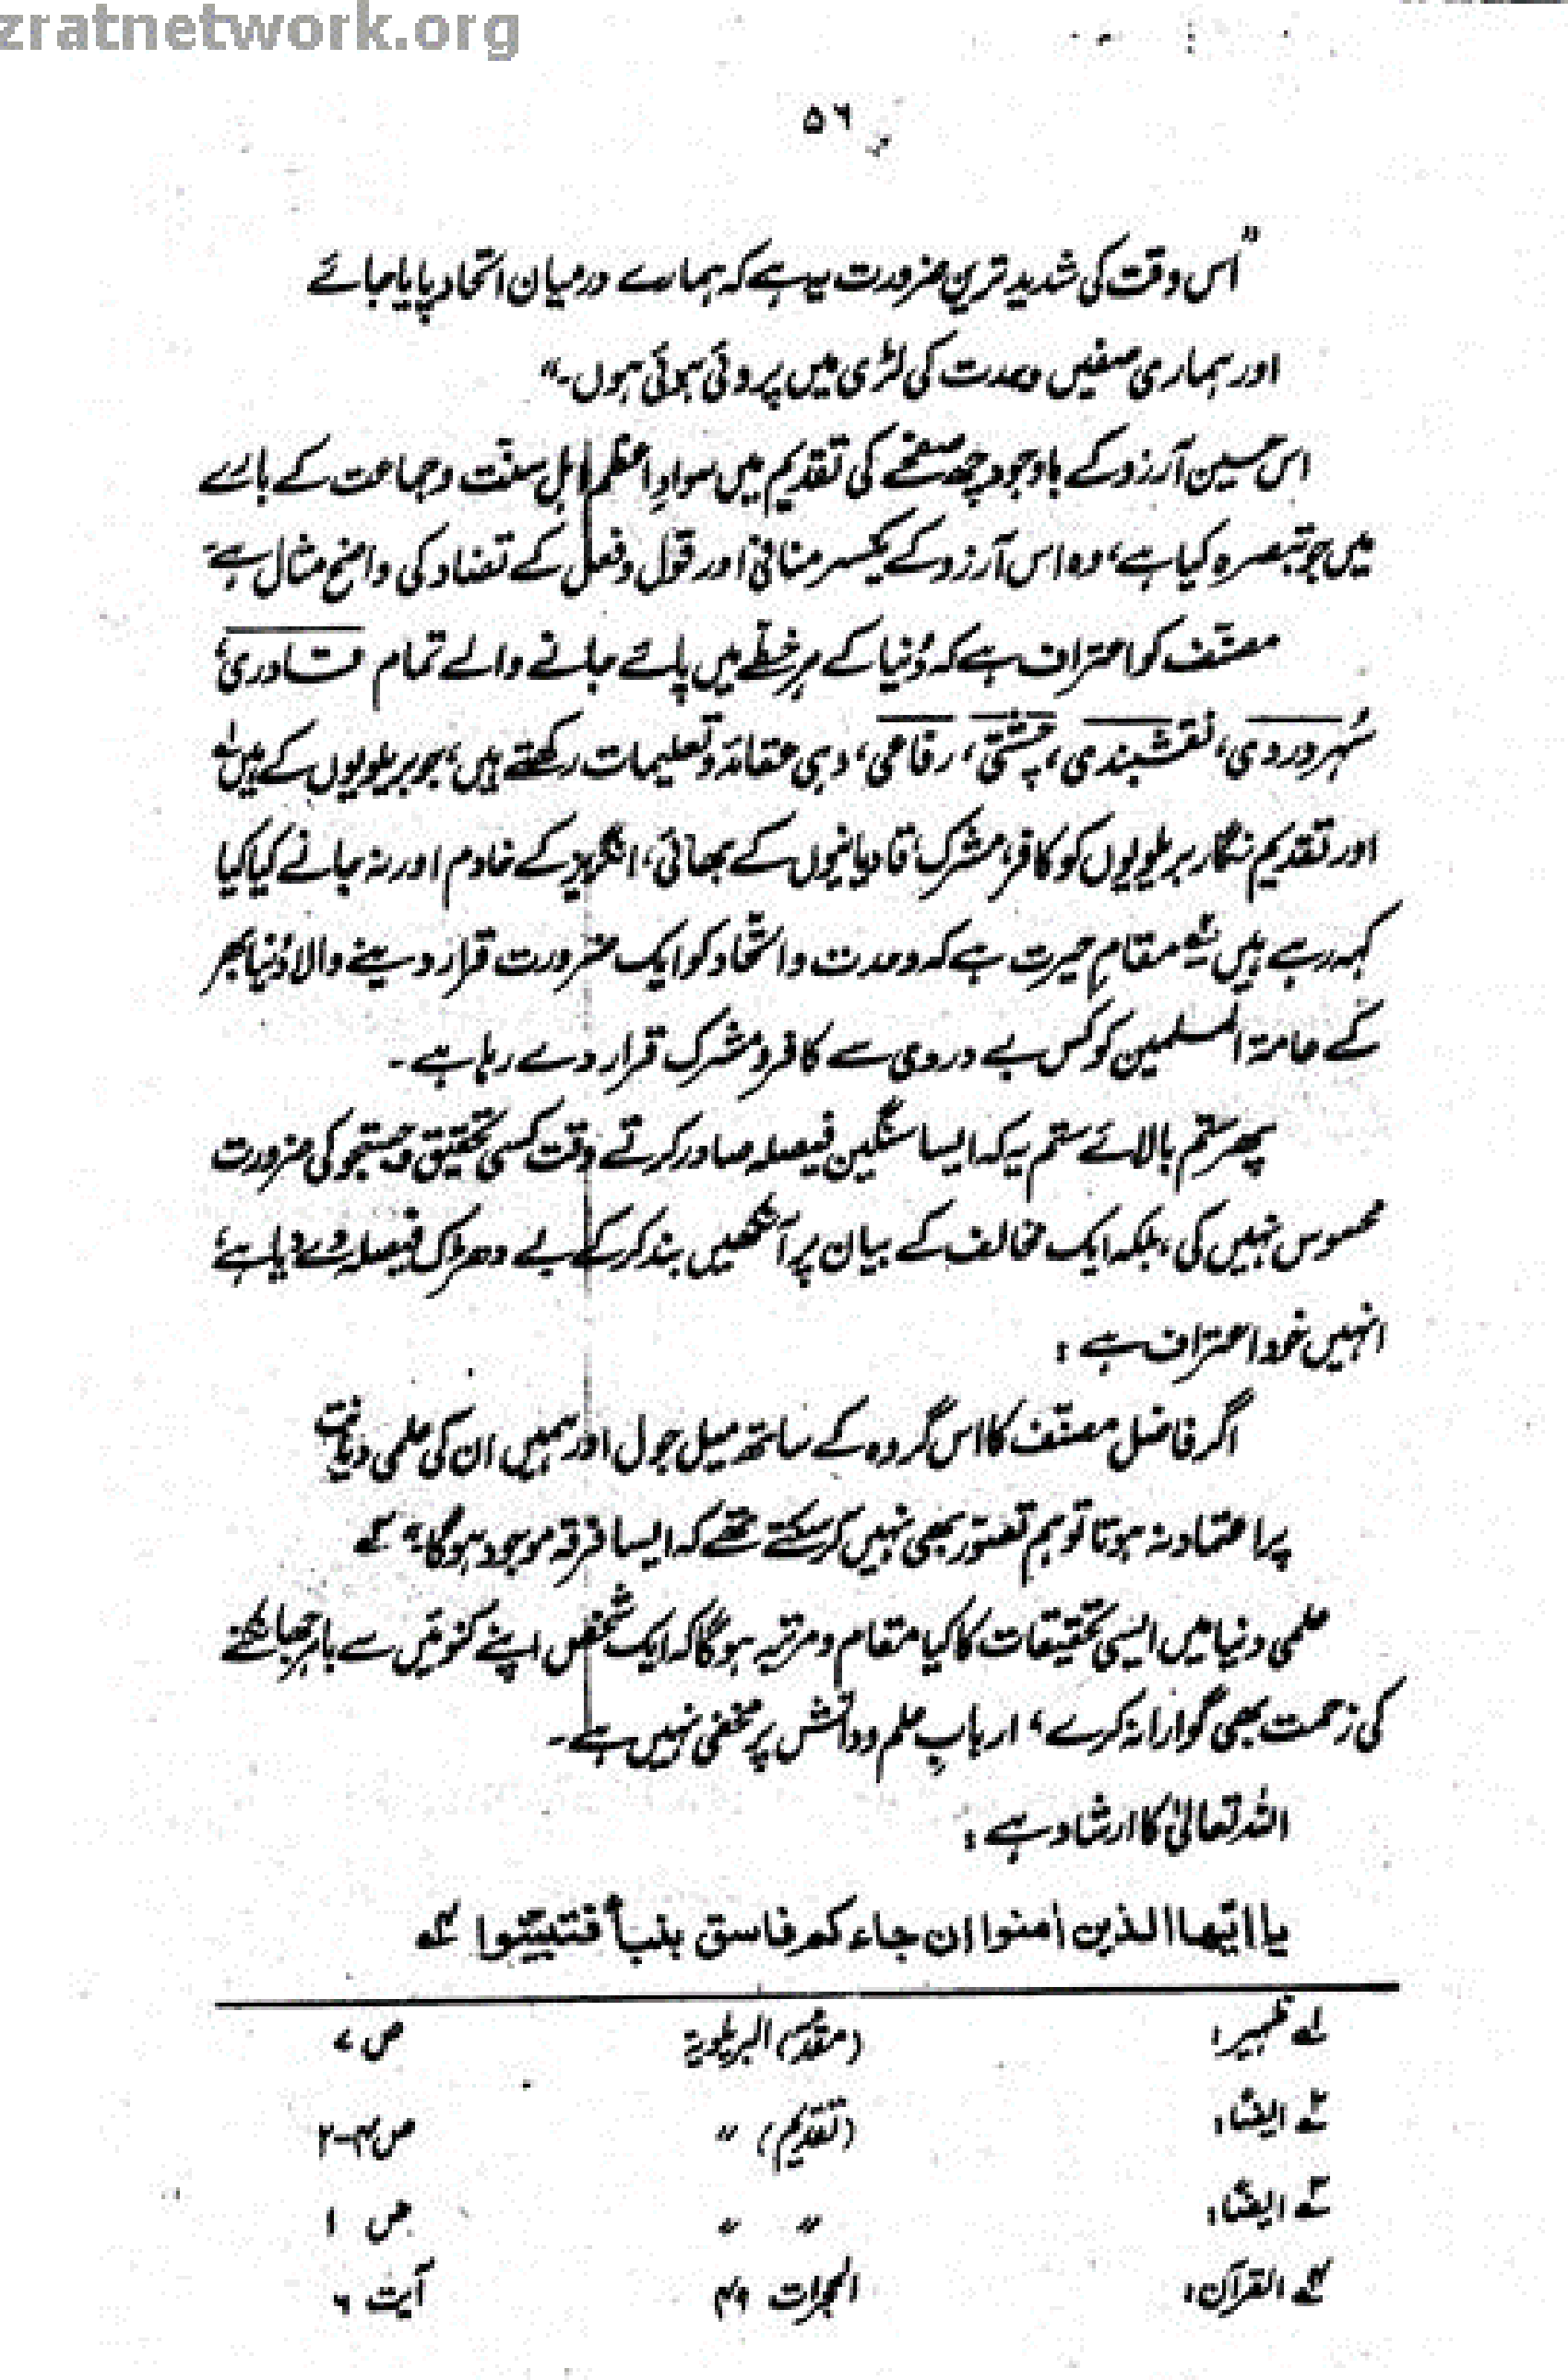 zratnetwork.org
۵۶
"اس وقت کی شدید ترین ضرورت یہ ہے کہ ہمارے درمیان اتحاد پایا جائے
اور ہماری صفیں وحدت کی لڑی میں پروئی ہوئی ہوں۔"
اس حسین آرزو کے باوجود چھ صفحے کی تقدیم میں سوادِ اعظم اہل سنّت و جماعت کے بارے
میں جو تبصرہ کیا ہے، وہ اس آرزو کے یکسر منافی اور قول و فعل کے تضاد کی واضح مثال ہے۔
مصنّف کو اعتراف ہے کہ دُنیا کے ہر خطّے میں پائے جانے والے تمام قادری،
سُہروردی، نقشبندی، چشتی، رفاعی، وہی عقائد و تعلیمات رکھتے ہیں، جو بریلویوں کے ہیں ۱؎
اور تقدیم نگار بریلویوں کو کافر، مشرک، قادیانیوں کے بھائی، انگریز کے خادم اور نہ جانے کیا کیا
کہہ رہے ہیں ۲؎ مقامِ حیرت ہے کہ وحدت و اتحاد کو ایک ضرورت قرار دینے والا دُنیا بھر
کے عامۃ المسلمین کو کس بے دردی سے کافر و مشرک قرار دے رہا ہے۔
پھر ستم بالائے ستم یہ کہ ایسا سنگین فیصلہ صادر کرتے وقت کسی تحقیق و جستجو کی ضرورت
محسوس نہیں کی، بلکہ ایک مخالف کے بیان پر آنکھیں بند کر کے بے دھڑک فیصلہ دے دیا ہے،
انہیں خود اعتراف ہے:
اگر فاضل مصنّف کا اس گروہ کے ساتھ میل جول اور ہمیں ان کی علمی دیانت
پر اعتماد نہ ہوتا تو ہم تصوّر بھی نہیں کر سکتے تھے کہ ایسا فرقہ موجود ہوگا" ۳؎
علمی دنیا میں ایسی تحقیقات کا کیا مقام و مرتبہ ہوگا کہ ایک شخص اپنے کنوئیں سے باہر جھانکنے
کی زحمت بھی گوارا نہ کرے، اربابِ علم و دانش پر مخفی نہیں ہے۔
اللہ تعالیٰ کا ارشاد ہے:
یا ایّھا الذین اٰمنوا ان جاءکم فاسق بنبأ فتبیّنوا ۴؎
۱؎ ظہیر: (مقدمہ) البریلویۃ ص ۷
۲؎ ایضًا: (تقدیم) " ص ۴-۲
۳؎ ایضًا: " " ص ۱
۴؎ القرآن: الحجرات ۴۹ آیت ۶